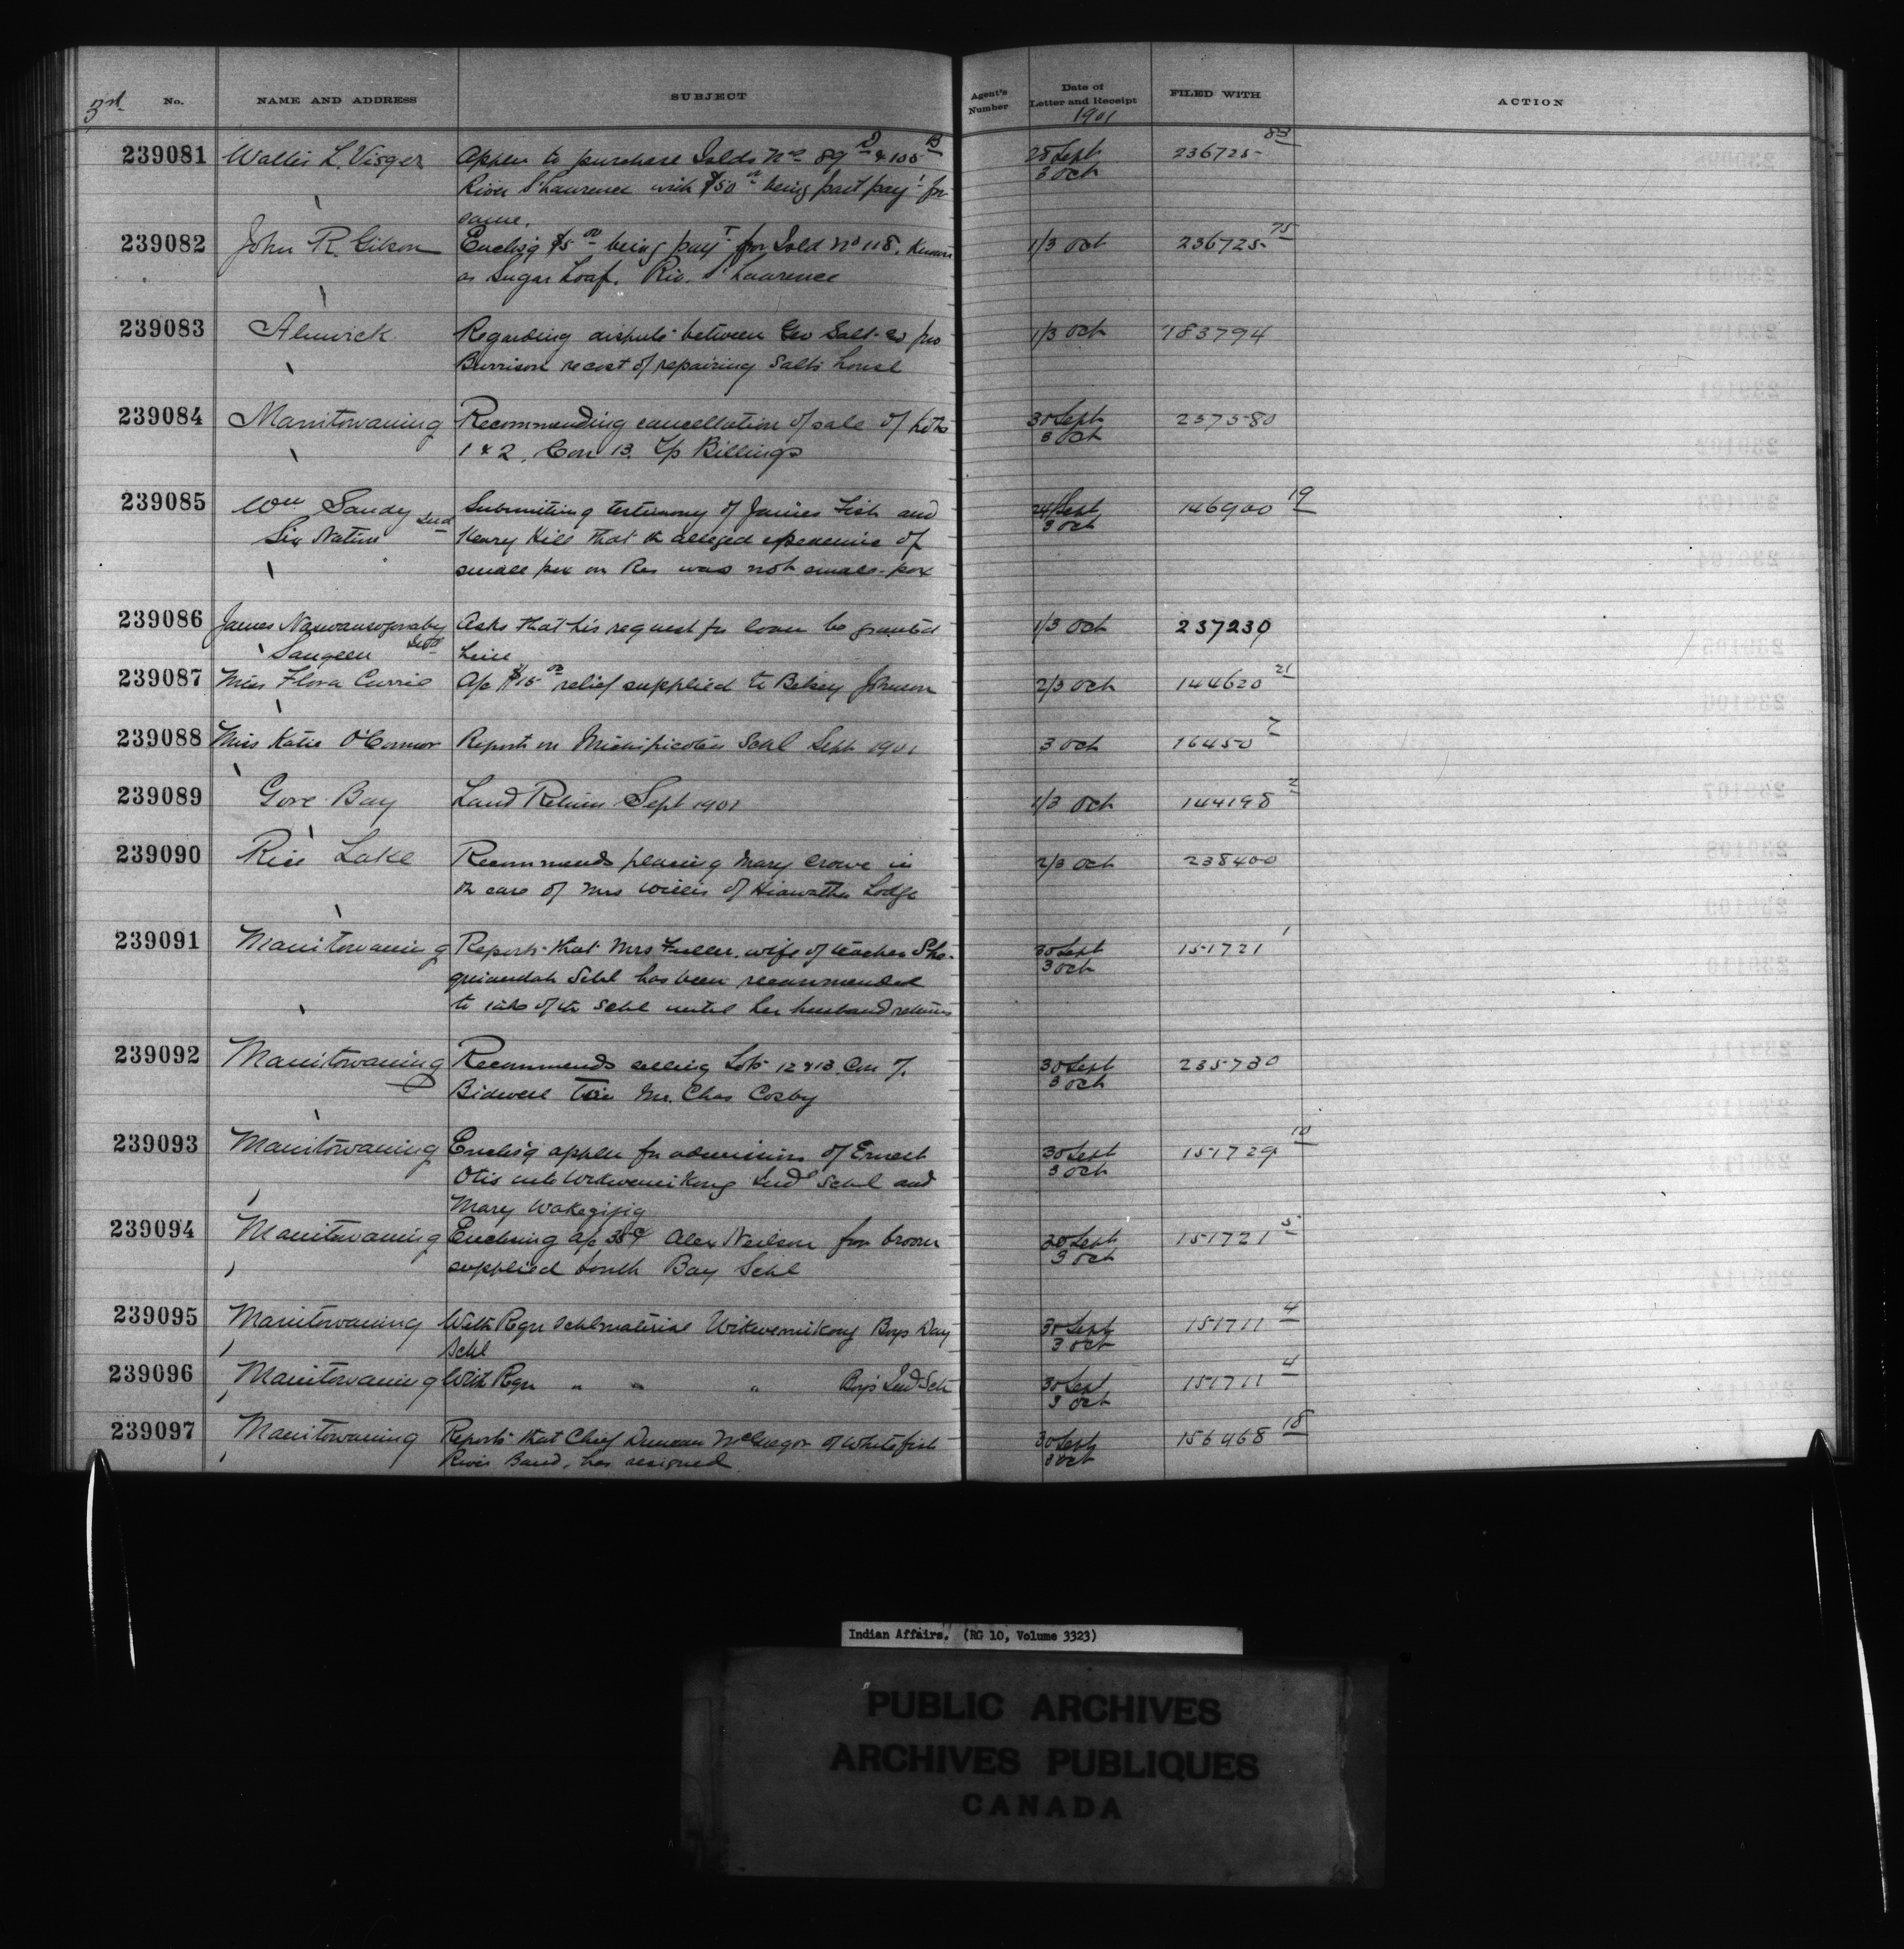 3rd No. NAME AND ADDRESS SUBJECT Agent's Number Date of Letter and Receipt 1901 FILED WITH ACTION
239081 Walter L. Visger Applen to purchase Islds Nos 89 D & 105 B 28 Sept 236725 83
River St Lawrence with $50 00 being part payt for 3 Oct
same.
239082 John R. Gibson Enclsg $5 00 being payt for Isld No 118, known 1/3 Oct 236725 75
as Sugar Loaf. Riv. St Lawrence
239083 Alnwick Regarding dispute between Geo Salt & Jno 1/3 Oct 183794
Burrison re cost of repairing Salts house
239084 Manitowaning Recommending cancellation of sale of Lots 30 Sept 237580
1 & 2, Con 13. T/p Billings 3 Oct
239085 Wm Sandy Submitting testimony of James Fish and 24/Sept 146900 19
Six Nation Ind Henry Hill that th alleged epidemic of 3 Oct
small pox on Res was not small-pox
239086 James Asks that his request for loan be granted 1/3 Oct 237230
Saugeen Ind him
239087 Miss Flora Currie A/c $15 00 relief supplied to Betsey Johnson 2/3 Oct 144620 21
239088 Miss Katie O'Connor Report on Michipicoten Schl Sept 1901 3 Oct 16450 7
239089 Gore Bay Land Return Sept 1901 1/3 Oct 144198 2
239090 Rice Lake Recommends placing Mary Crowe in 2/3 Oct 238400
th care of Mrs Willis of Hiawatha Lodge
239091 Manitowaning Reports that Mrs Fuller, wife of teacher She- 30 Sept 151721 1
guiandah Schl has been recommended 3 Oct
to take of th Schl until her husband returns
239092 Manitowaning Recommends selling Lots 12 & 13 Con 7. 30 Sept 235730
Bidwell to Mr. Chas Cosby 3 Oct
239093 Manitowaning Enclsg applen for admission of Ernest 30 Sept 151729 10
Otis into Wikwemikong Indl Schl and 3 Oct
Mary Wakegijig
239094 Manitowaning Enclosing a/c 35c Alex Neilson for broom 30 Sept 151721 5
supplied South Bay Schl 3 Oct
239095 Manitowaning With Reqn Schl material Wikwemikong Boys Day 30 Sept 151711 4
Schl 3 Oct
239096 Manitowaning With Reqn " " " Boys Ind Sch 30 Sept 151711 4
3 Oct
239097 Manitowaning Reports that Chief Duncan McGregor of Whitefish 30 Sept 156468 18
River Band, has resigned 3 Oct
Indian Affairs. (RG 10, Volume 3323)
PUBLIC ARCHIVES
ARCHIVES PUBLIQUES
CANADA